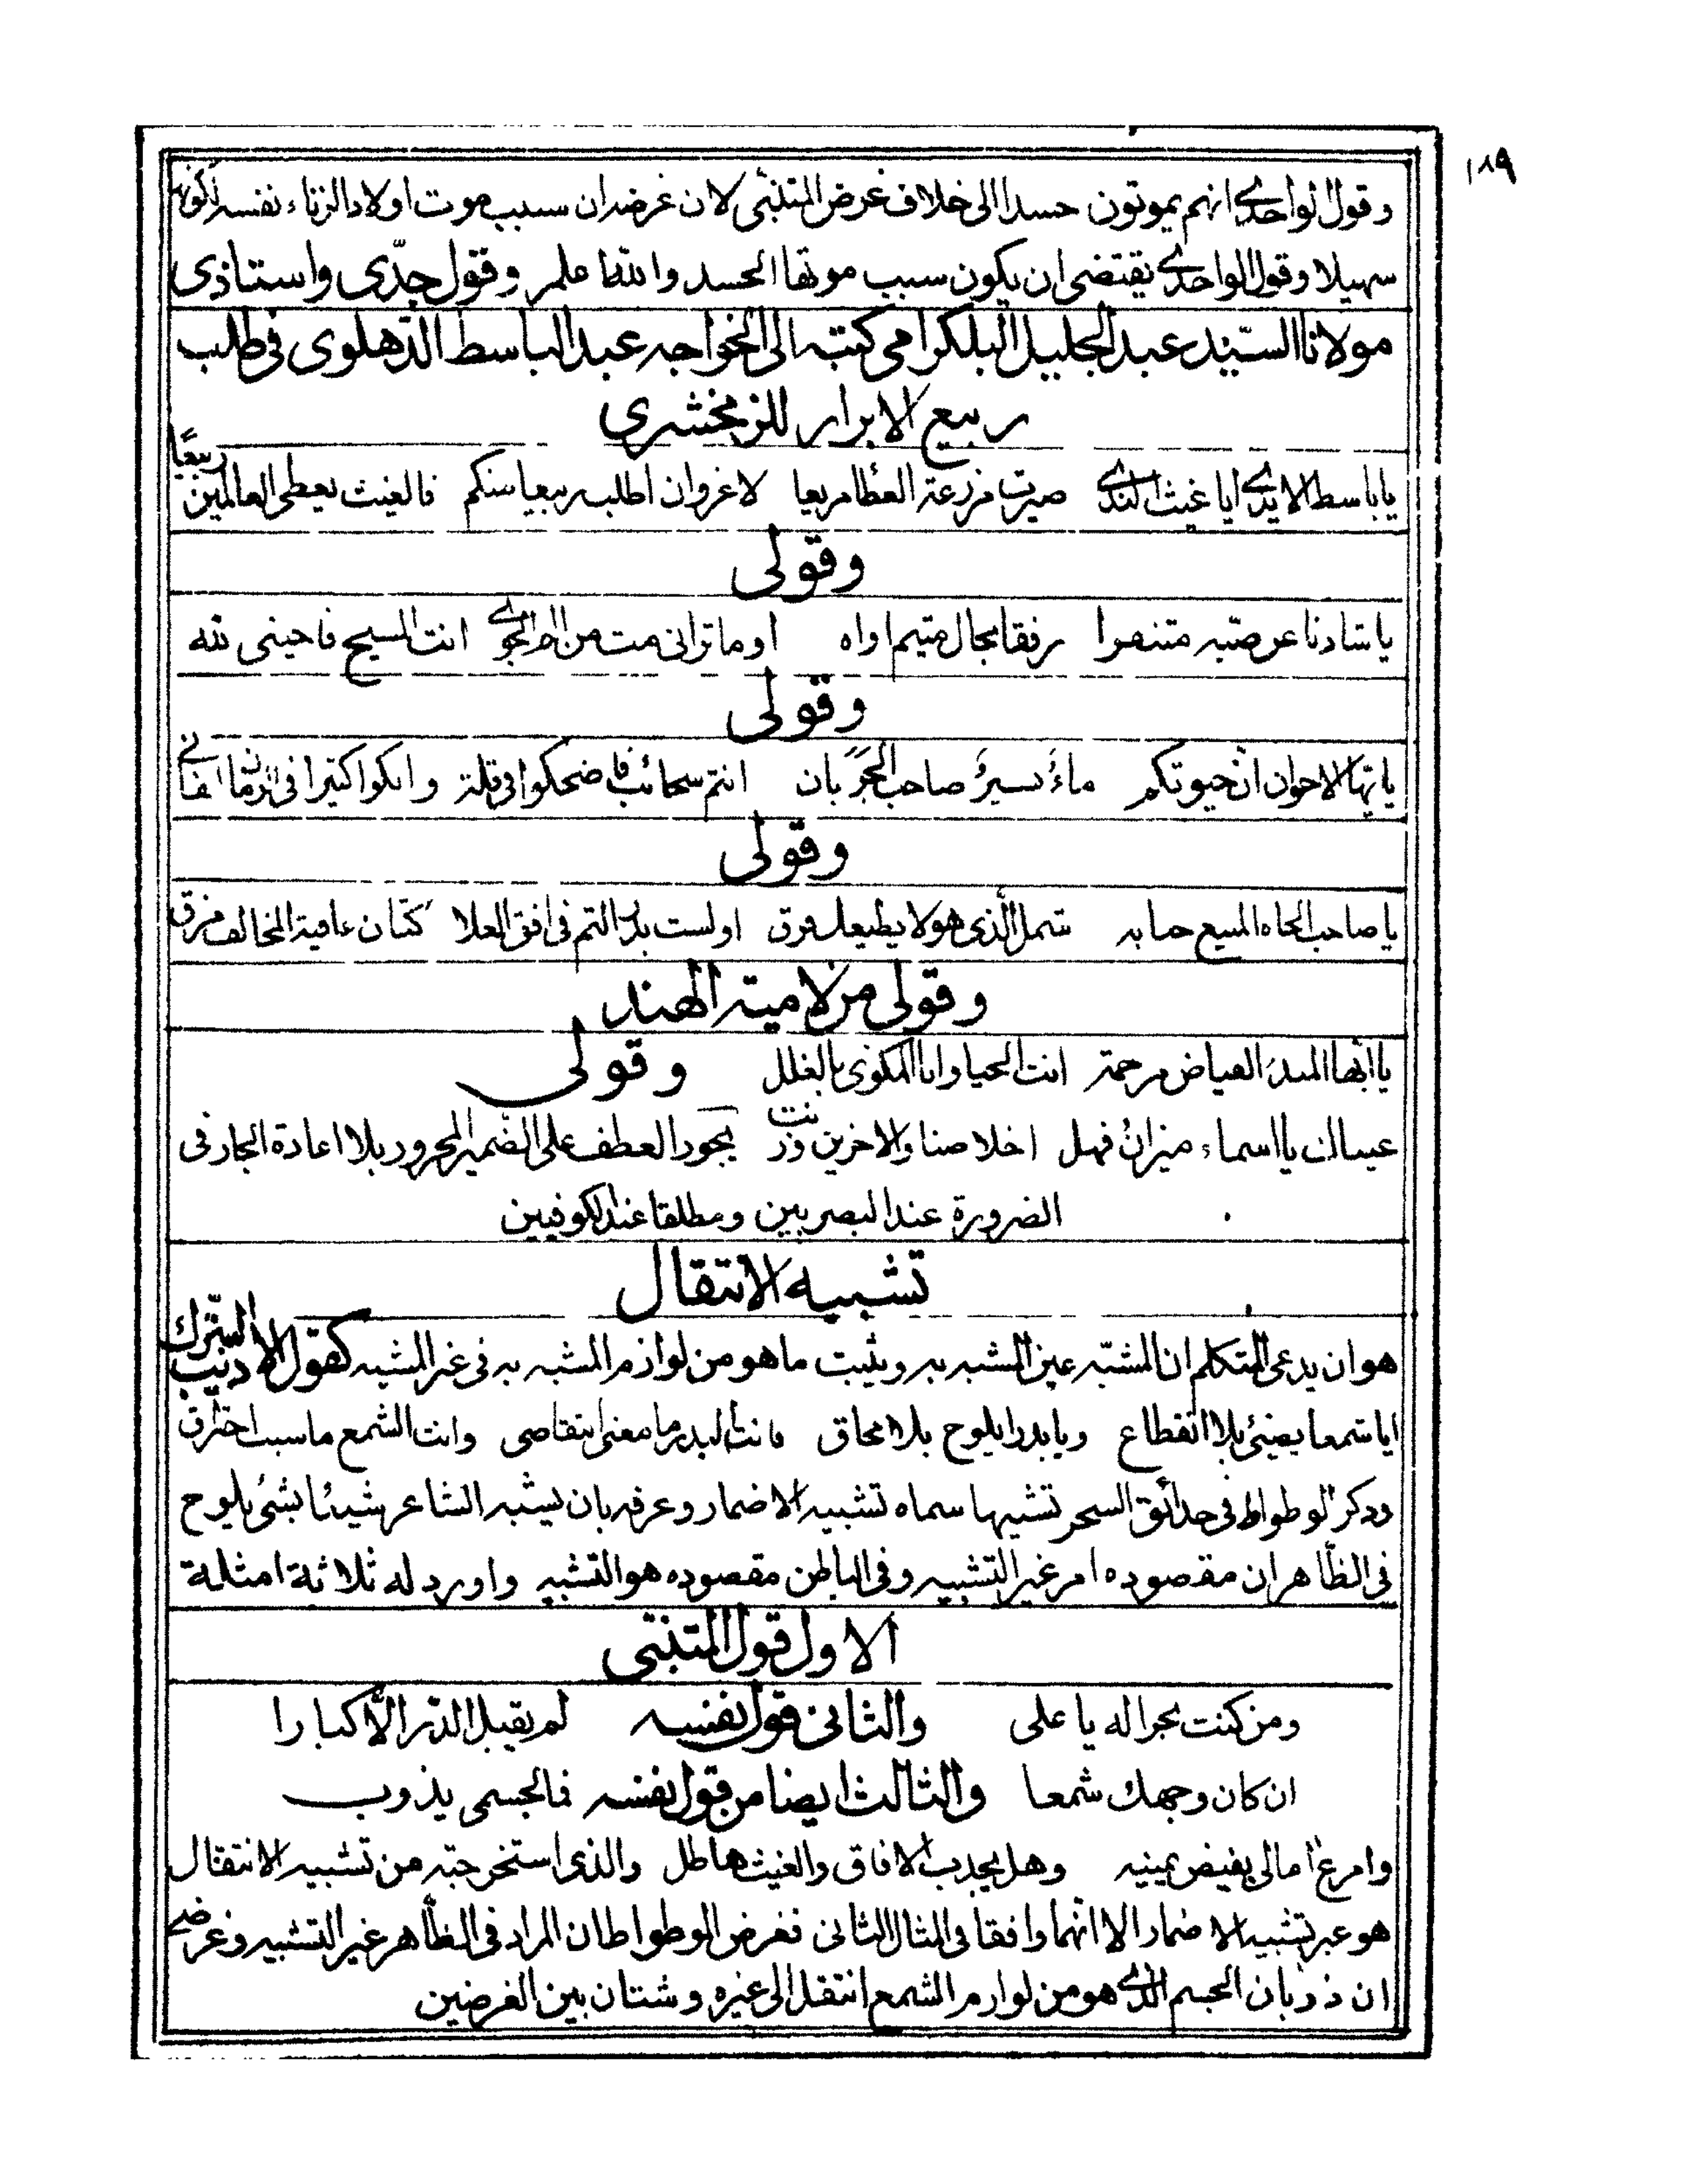 ١٨٩
وقول الواحدى انهم يموتون حسدا الى خلاف غرض المتنبّى لان غرضه ان سبب موت اولاد الزناء نفسه لكونه
سهيلا وقول الواحدى يقتضى ان يكون سبب موتها الحسد والله اعلم وقول جدّى واستاذى
مولانا السّيد عبد الجليل البلكرامى كتبه الى الخواجه عبد الباسط الدّهلوى فى طلب
ربيع الابرار للزمخشرى
يا باسط الايدى ايا غيث الندى صيرت مزرعة العطا مريعا لا غروان اطلب ربيعا منكم فالغيث يعطى العالمين ربيعًا
وقولى
يا شادنا عن صبّه متنفرا رفقا بحال متيم اواه او ما ترانى مت من الم الجوى انت المسيح فاحينى لله
وقولى
يا ايّها الاخوان انّ حيوتكم ماءٌ يسيرٌ صاحب الجريان انتم سحائب فاضحكوا فى قلة وابكوا كثيرا فى الزمان الفانى
وقولى
يا صاحب الجاه المنيع جنابه شمل الّذى هو لا يطيعك فرق اولست بدر التم فى افق العلا كتان عافية المخالف مزق
وقولى من لامية الهند
يا ايّها السيد الفياض مرحمة انت الحيا وانا المكوى بالغلل وقولى
عيناك يا اسماء ميزان فهل اخلاصنا والاخرين وزنت يجوز العطف على الضمير المجرور بلا اعادة الجار فى
الضرورة عند البصريين ومطلقا عند الكوفيين
تشبيه الانتقال
هو ان يدعى المتكلم ان المشبّه عين المشبه به ويثبت ما هو من لوازم المشبه به فى غير المشبه كقول الاديب السّترك
ايا شمعا يضئ بلا انقطاع ويا بدرا يلوح بلا محاق فانت البدر ما معنى انتقاصى وانت الشمع ما سبب احتراق
وذكر الوطواط فى حدائق السحر تشبيها سماه تشبيه الاضمار وعرفه بان يشبه الشاعر شيئا بشئ يلوح
فى الظّاهر ان مقصوده امر غير التشبيه وفى الباطن مقصوده هو التشبيه واورد له ثلاثة امثلة
الاول قول المتنبّى
ومن كنت بحرا له يا على والثانى قول نفسه لم يقبل الدّر الّا كبارا
ان كان وجهك شمعا والثالث ايضا من قول نفسه فما لجسمى يذوب
وامرغ امالى بفيض يمينه وهل يجدب الافاق والغيث هاطل والذى استخرجته من تشبيه الانتقال
هو غير تشبيه الاضمار الا انهما وافقا فى المثال الثانى فغرض الوطواط ان المراد فى الظّاهر غير التشبيه وغرضى
ان ذوبان الجسم الذى هو من لوازم الشمع انتقل الى غيره وشتان بين الغرضين